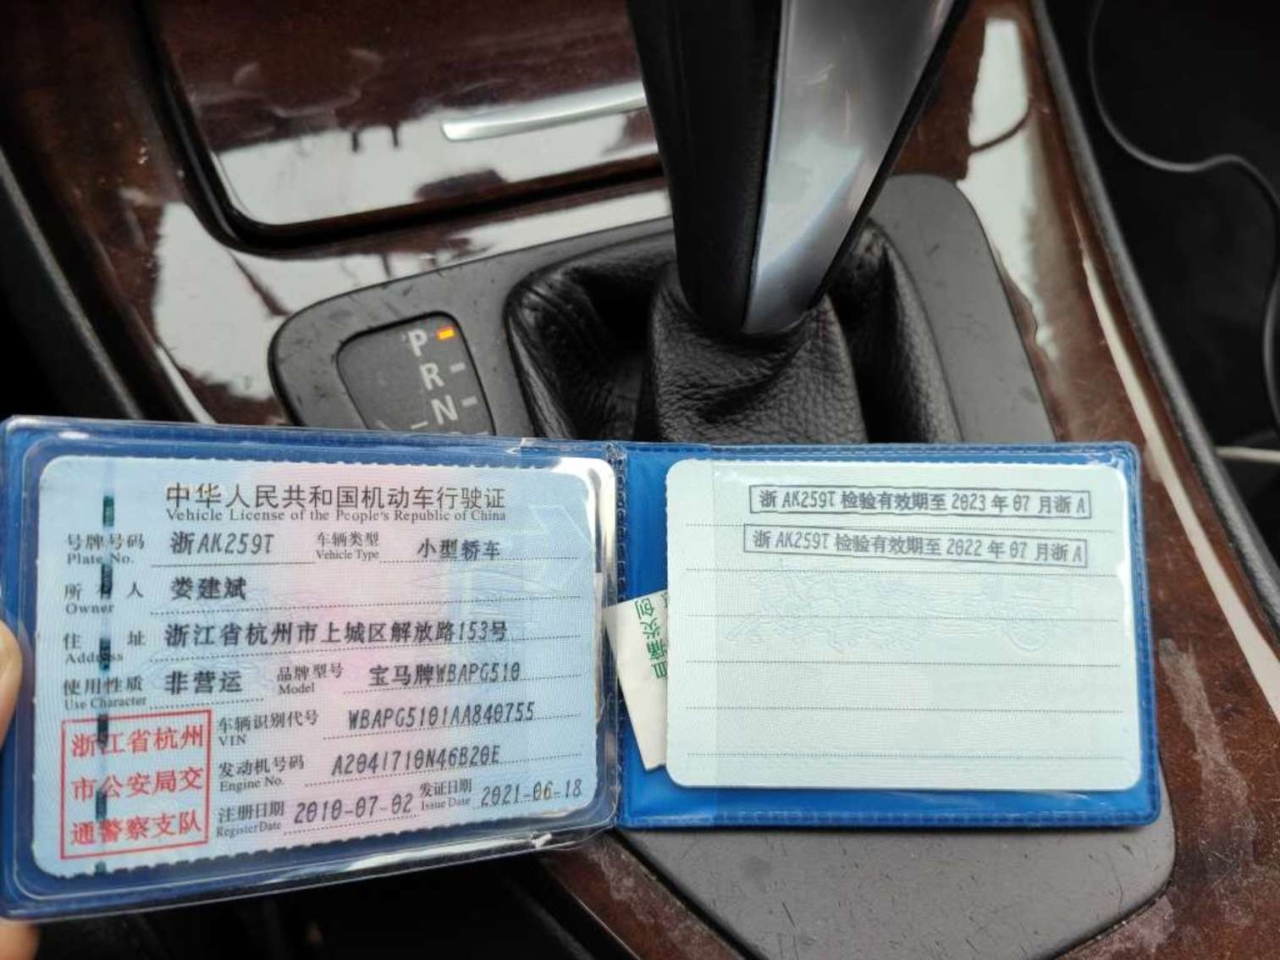 P
R
N
中华人民共和国机动车行驶证
Vehicle License of the People's Republic of China
号牌号码 浙AK259T 车辆类型 小型轿车
Plate No. Vehicle Type
所有人 娄建斌
Owner
住址 浙江省杭州市上城区解放路153号
Address
使用性质 非营运 品牌型号 宝马牌WBAPG510
Use Character Model
浙江省杭州
市公安局交
通警察支队
车辆识别代号 WBAPG5101AA840755
VIN
发动机号码 A2041710N46B20E
Engine No.
注册日期 2010-07-02 发证日期 2021-06-18
Register Date Issue Date
浙AK259T 检验有效期至 2023 年 07 月浙A
浙AK259T 检验有效期至 2022 年 07 月浙A